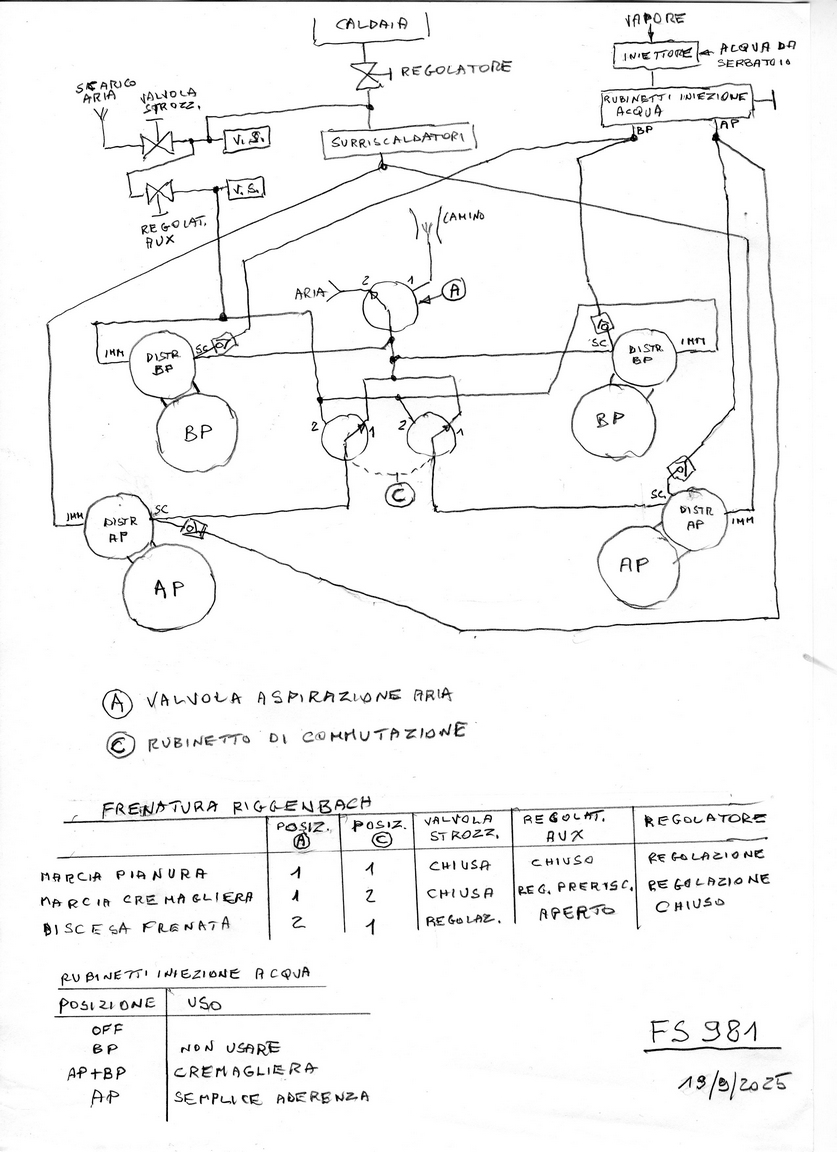 CALDAIA
VAPORE
INIETTORE
ACQUA DA
SERBATOIO
REGOLATORE
SCARICO
ARIA
VALVOLA
STROZZ.
RUBINETTI INIEZIONE
ACQUA
V.S.
SURRISCALDATORI
BP
AP
V.S.
REGOLAT.
AUX
CAMINO
ARIA
2
1
A
IMM
DISTR
BP
SC
SC
DISTR
BP
IMM
BP
2
1
2
1
BP
C
IMM
DISTR
AP
SC
SC
DISTR
AP
IMM
AP
AP
A VALVOLA ASPIRAZIONE ARIA
C RUBINETTO DI COMMUTAZIONE
FRENATURA RIGGENBACH
POSIZ.
A
POSIZ.
C
VALVOLA
STROZZ.
REGOLAT.
AUX
REGOLATORE
MARCIA PIANURA 1 1 CHIUSA CHIUSO REGOLAZIONE
MARCIA CREMAGLIERA 1 2 CHIUSA REG. PRERISC. REGOLAZIONE
DISCESA FRENATA 2 1 REGOLAZ. APERTO CHIUSO
RUBINETTI INIEZIONE ACQUA
POSIZIONE USO
OFF
BP NON USARE
AP+BP CREMAGLIERA
AP SEMPLICE ADERENZA
FS 981
19/9/2025